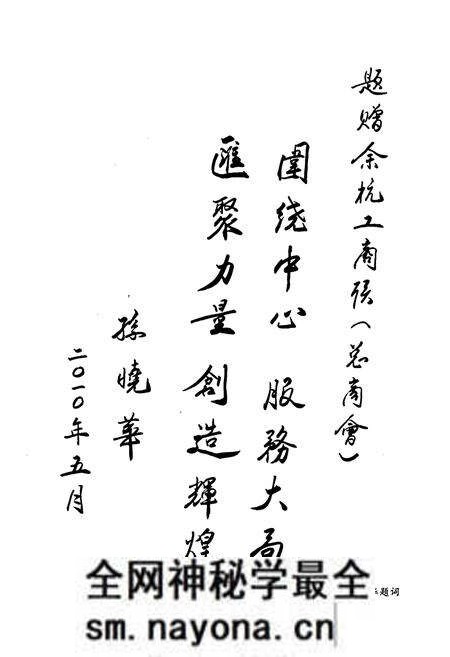 题赠余杭工商联(总商會)
圍绕中心 服務大局
匯聚力量 創造輝煌
孫曉華
二〇一〇年五月
题词
全网神秘学最全
sm.nayona.cn